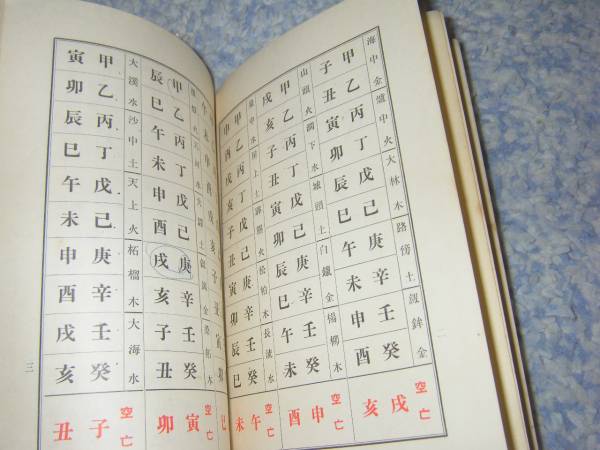 海中金 爐中火 大林木 路傍土 釼鉾金
甲乙丙丁戊己庚辛壬癸
子丑寅卯辰巳午未申酉
空亡 戌亥
山頭火 澗下水 城頭土 白鑞金 楊柳木
甲乙丙丁戊己庚辛壬癸
戌亥子丑寅卯辰巳午未
空亡 申酉
中水 屋上土 霹靂火 松柏木 長流水
甲乙丙丁戊己庚辛壬癸
申酉戌亥子丑寅卯辰巳
空亡 午未
二
午未申酉戌亥子丑寅卯
巳
火 水 土 金 木
甲乙丙丁戊己庚辛壬癸
辰巳午未申酉戌亥子丑
空亡 寅卯
大溪水 沙中土 天上火 柘榴木 大海水
甲乙丙丁戊己庚辛壬癸
寅卯辰巳午未申酉戌亥
空亡 子丑
三